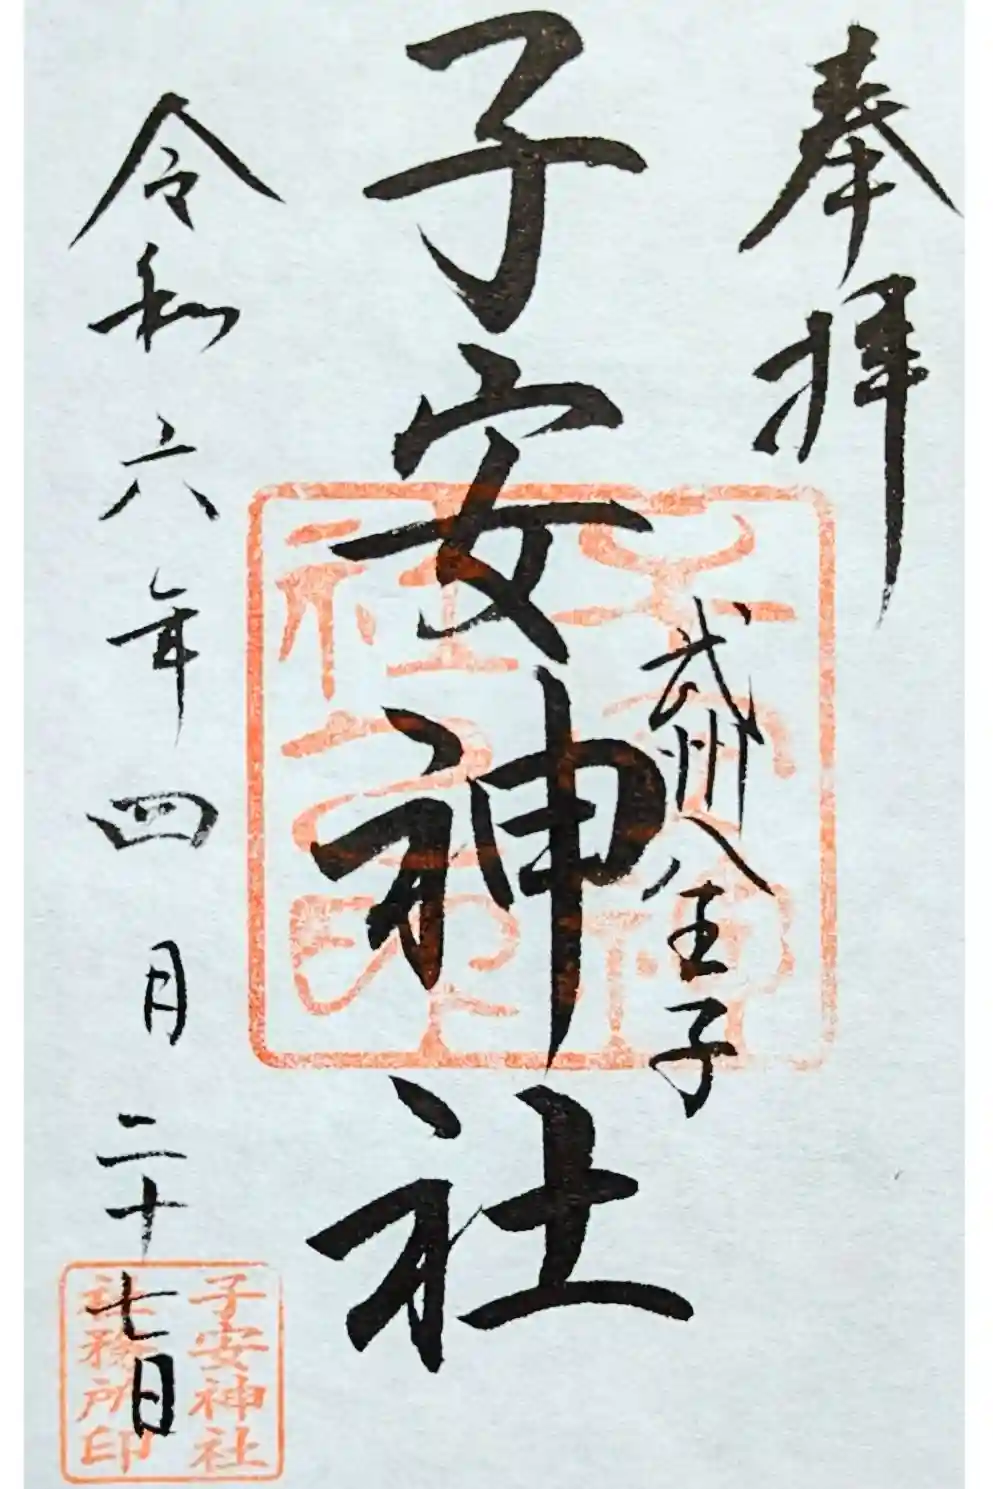 奉拝
武州八王子
子安神社
令和六年四月二十七日
子安神社
社務所印